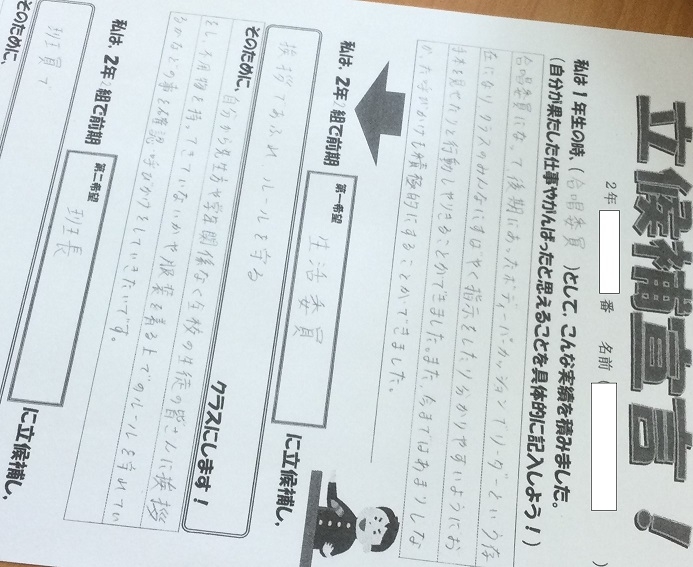 立候補宣言！
2年 番 名前（ ）
私は1年生の時、（合唱委員）として、こんな実績を積みました。
（自分が果たした仕事やがんばったと思えることを具体的に記入しよう！）
合唱委員になって後期にあったボディーパーカッションでリーダーという存
在になりクラスのみんなにすばやく指示をしたり分かりやすいようにお
手本を見せたりと行動しやりきることができました。また、今まではあまりしな
かった声がけも積極的にすることができました。
私は、2年2組で前期 第一希望 生活委員 に立候補し、
挨拶であふれ、ルールを守る クラスにします！
そのために、自分から先生方や学年関係なく全校の生徒の皆さんに挨拶
をし、不用物を持ってきていないかや服装を着る上でのルールを守れてい
るかなどの事を確認、呼びかけをしていきたいです。
私は、2年2組で前期 第二希望 班長 に立候補し、
班員で
そのために、